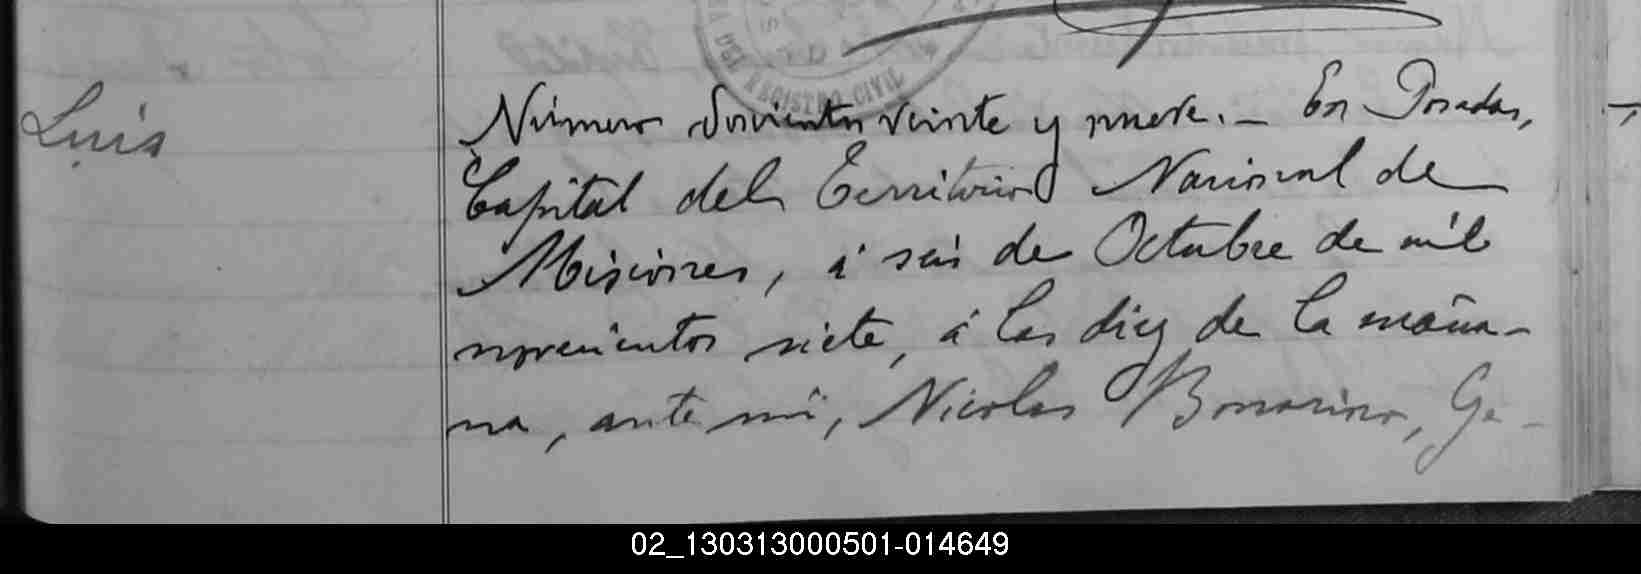 REGISTRO CIVIL
Luis
Número doscientos veinte y nueve. – En Posadas,
Capital del Territorio Nacional de
Misiones, á seis de Octubre de mil
novecientos siete, á las diez de la maña-
na, ante mí, Nicolas Bonarino, Ge-
02_130313000501-014649